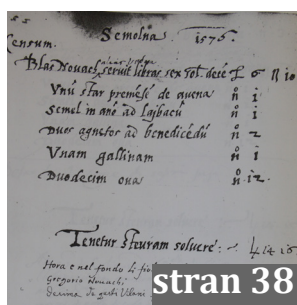 Semolina 1576.
Censum.
Blas Novach servit libras sex sol. decē £ 6 ß 10
Vnū star premēsę de auena n̊ i
Semel in anō ad Lajbacū n̊ i
Duos agnetos ad benedicēdū n̊ 2
Vnam gallinam n̊ i
Duodecim oua n̊ .12.
Tenetur steuram soluere: L4
Hora e nel fondo
Gregorio Nouach
stran 38